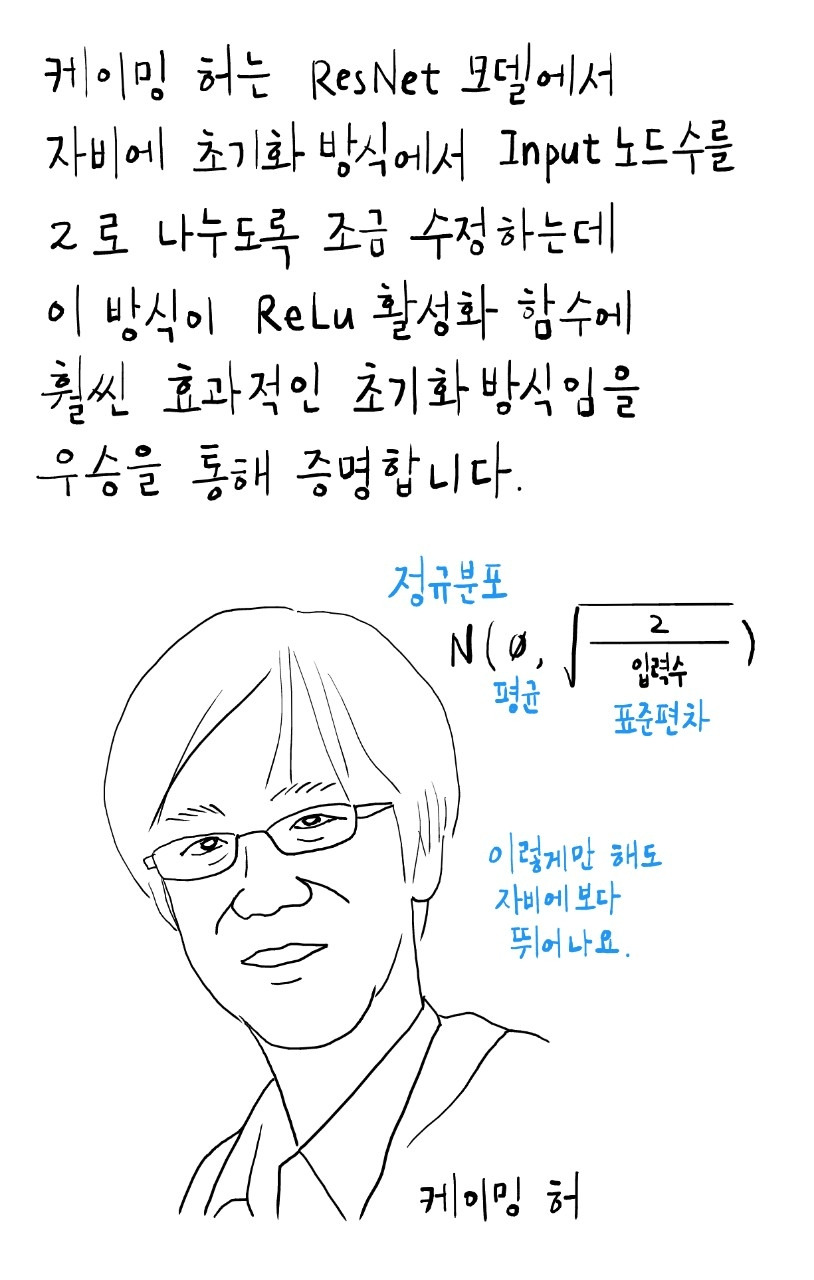 케이밍 허는 ResNet 모델에서
자비에 초기화 방식에서 Input 노드수를
2로 나누도록 조금 수정하는데
이 방식이 ReLu 활성화 함수에
훨씬 효과적인 초기화 방식임을
우승을 통해 증명합니다.
정규분포
N(0, √(2/입력수))
평균
표준편차
이렇게만 해도
자비에보다
뛰어나요.
케이밍 허